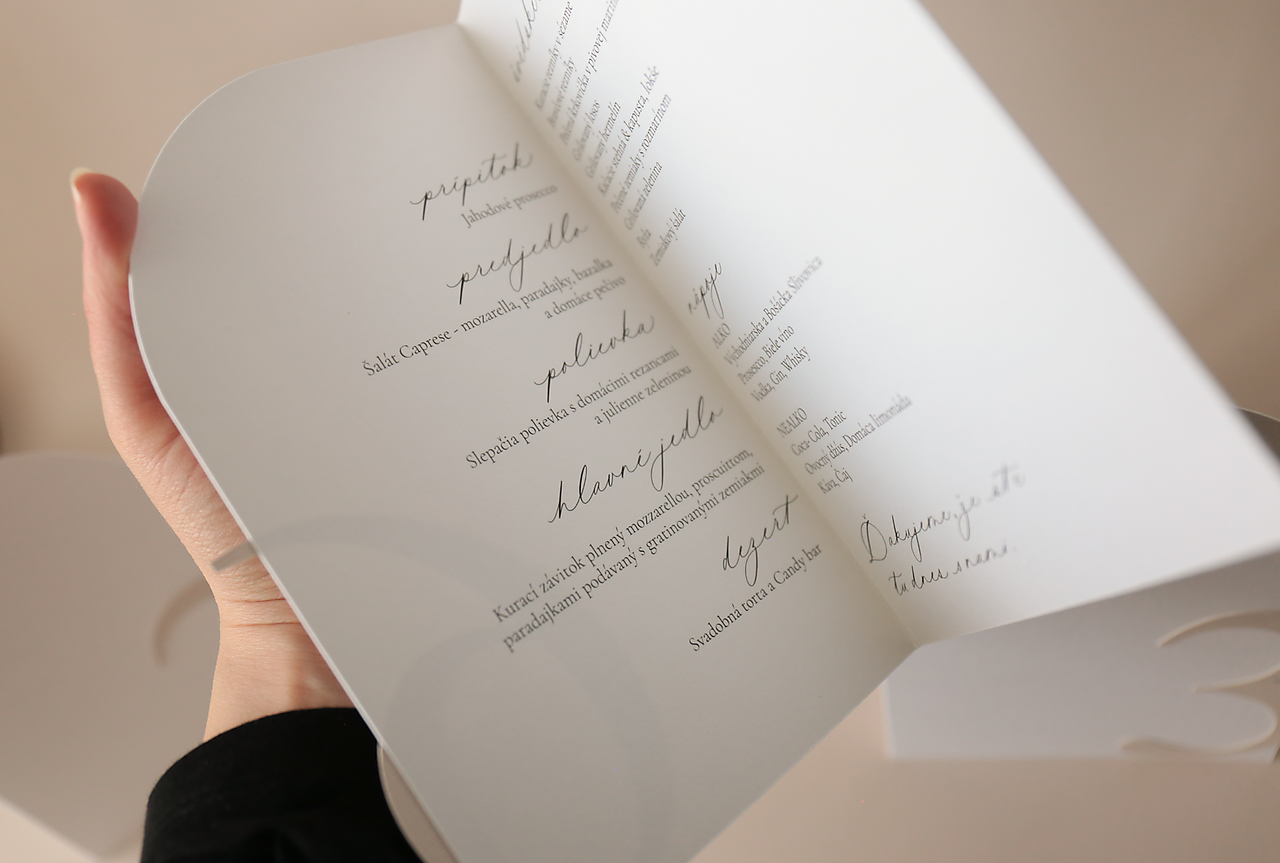 prípitok
Jahodové prosecco
predjedlo
Šalát Caprese - mozarella, paradajky, bazalka
a domáce pečivo
polievka
Slepačia polievka s domácimi rezancami
a julienne zeleninou
hlavné jedlo
Kurací závitok plnený mozzarellou, proscuittom,
paradajkami podávaný s gratinovanými zemiakmi
dezert
Svadobná torta a Candy bar
Kuracie rezníky v sézame
Bravčové rezníky
v pivovej
Grilovaný losos
Grilovaný hermelín
Kačacie stehná & kapusta, lokše
Pečené zemiaky s rozmarínom
Grilovaná zelenina
Ryža
Zemiakový šalát
nápoje
ALKO
Východniarska a Bošácka Slivovica
Prosecco, Biele víno
Vodka, Gin, Whisky
NEALKO
Coca-Cola, Tonic
Ovocný džús, Domáca limonáda
Káva, Čaj
Ďakujeme, je ste
tu dnes s nami.